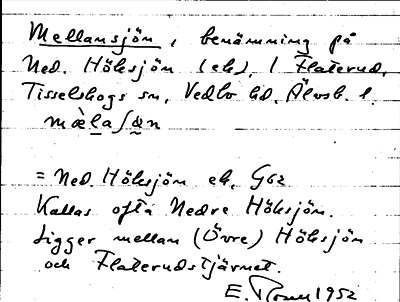 Mellansjön, benämning på
Ned. Höksjön (ek), i Flaterud,
Tisselskogs sn, Vedbo hd, Älvsb. l.
mæ̀la ʃøn
= Ned. Höksjön ek. G62
Kallas ofta Nedre Höksjön.
Ligger mellan (Övre) Höksjön
och Flaterudstjärnet.
E. 1952